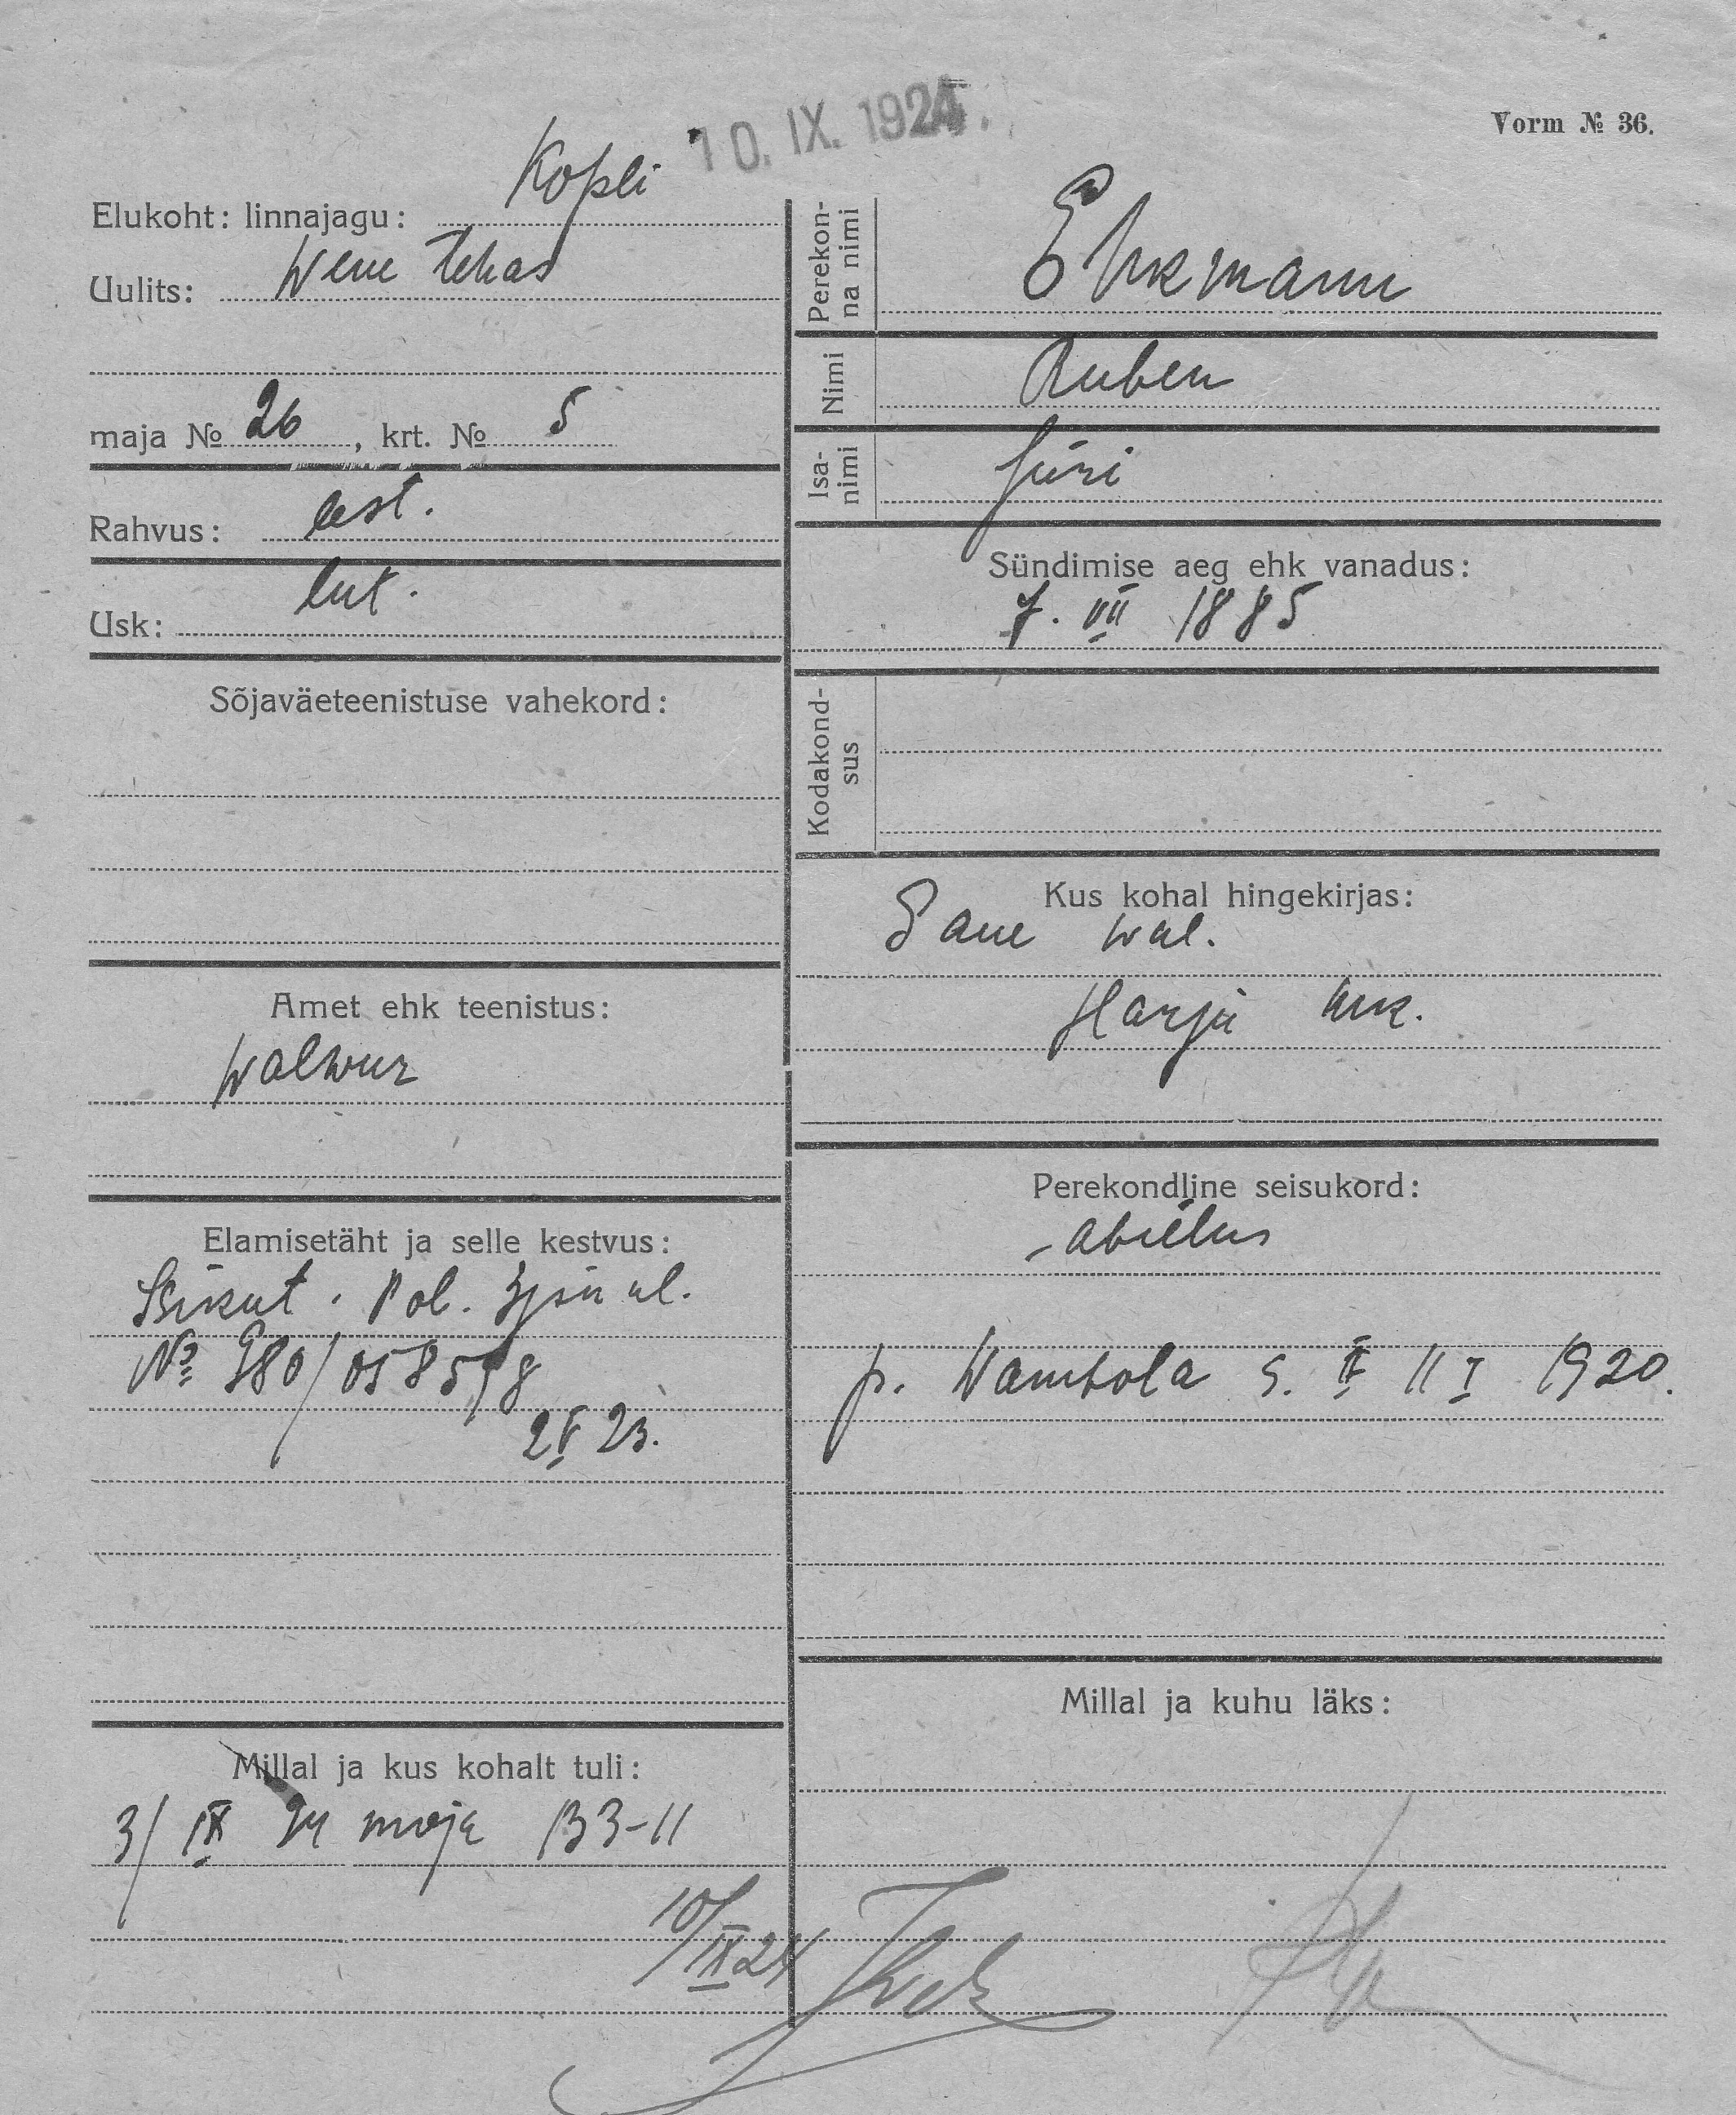 10. IX. 1924.
Vorm № 36.
Elukoht: linnajagu: Kopli
Uulits: Wene tehas
maja № 26, krt. № 5
Rahvus: eest.
Usk: lut.
Sõjaväeteenistuse vahekord:
Amet ehk teenistus:
Walwur
Elamisetäht ja selle kestvus:
Isikut. Pol. 3 jsk ul.
№ 980/058598
2 V 23.
Millal ja kus kohalt tuli:
3/ IX 24 maja 133-11
10/IX 24
Perekonna nimi
Ehkmann
Nimi Ruben
Isanimi Jüri
Sündimise aeg ehk vanadus:
7. VII 1885
Kodakondsus
Kus kohal hingekirjas:
Saue wal.
Harju mk.
Perekondline seisukord:
abielus
p. Wambola s. 11 I 1920.
Millal ja kuhu läks: